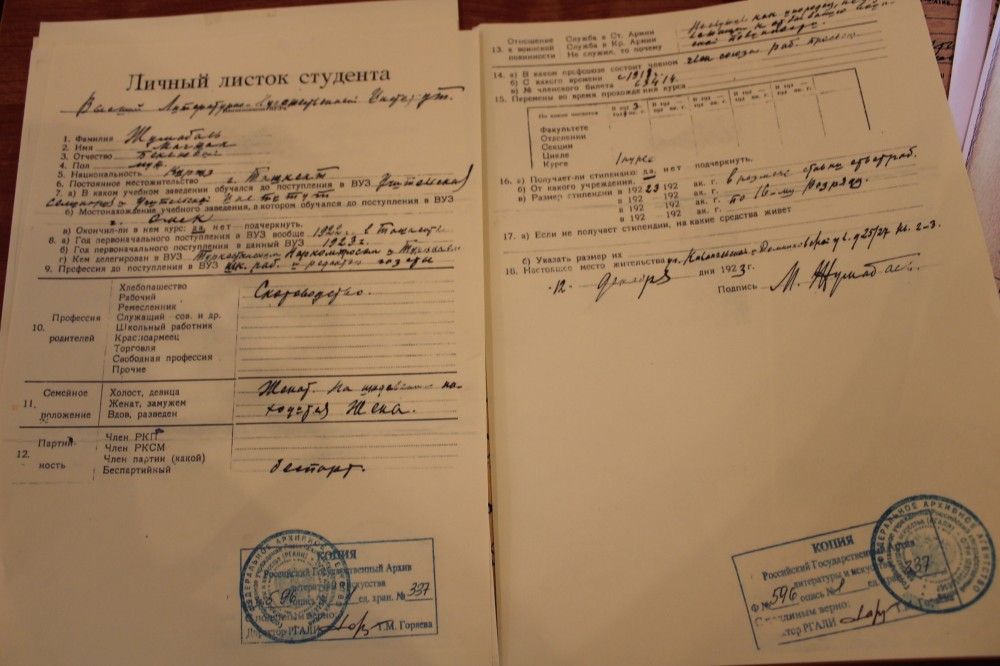 Личный листок студента
Высший Литературно-Художественный Институт.
1. Фамилия Жумабаев
2. Имя Магжан
3. Отчество
4. Пол муж.
5. Национальность
6. Постоянное местожительство г. Ташкент
7. а) В каком учебном заведении обучался до поступления в ВУЗ Учительская
семинария и
б) Местонахождение учебного заведения, в котором обучался до поступления в ВУЗ
г. Омск
в) Окончил-ли в нем курс: да, нет—подчеркнуть.
8. а) Год первоначального поступления в ВУЗ вообще 1922 г. в Ташкенте
б) Год первоначального поступления в данный ВУЗ 1923 г.
с) Кем делегирован в ВУЗ Туркестанским Наркомпросом
9. Профессия до поступления в ВУЗ раб. и газеты
10. Профессия родителей
Хлебопашество
Рабочий
Ремесленник
Служащий сов. и др.
Школьный работник
Красноармеец
Торговля
Свободная профессия
Прочие
Скотоводство.
11. Семейное положение
Холост, девица
Женат, замужем
Вдов, разведен
Женат. На иждивении на-
ходится жена.
12. Партий-ность
Член РКП
Член РКСМ
Член партии (какой)
Беспартийный
беспарт.
КОПИЯ
Российский Государственный Архив
литературы и искусства
Ф № 596 опись № 1 ед. хран. № 337
С подлинным верно:
Директор РГАЛИ Т.М. Горяева
13. Отношение к воинской повинности
Служба в Ст. Армии
Служба в Кр. Армии
Не служил, то почему
14. а) В каком профсоюзе состоит членом член союза раб. просвещ.
б) С какого времени с 1919 г.
в) № членского билета
15. Перемены во время прохождения курса
На каком числится
В 192 3 г.
В 192 г.
В 192 г.
В 192 г.
В 192 г.
В 192 г.
Факультете
Отделении
Секции
Цикле
Курсе
1 курсе
16. а) Получает-ли стипендию: да, нет подчеркнуть.
б) От какого учреждения
в) Размер стипендии в 1923 192 ак. г. в размере ставки ответраб.
в 192 192 ак. г. по 16-му разряду.
в 192 192 ак. г.
17. а) Если не получает стипендии, на какие средства живет
с) Указать размер их
18. Настоящее место жительства ул.
"12" декабря дня 1923 г.
Подпись М. Жумабаев.
КОПИЯ
Российский Государственный Архив
литературы и искусства
Ф № 596 опись № 1 ед. хран. № 337
С подлинным верно:
Директор РГАЛИ